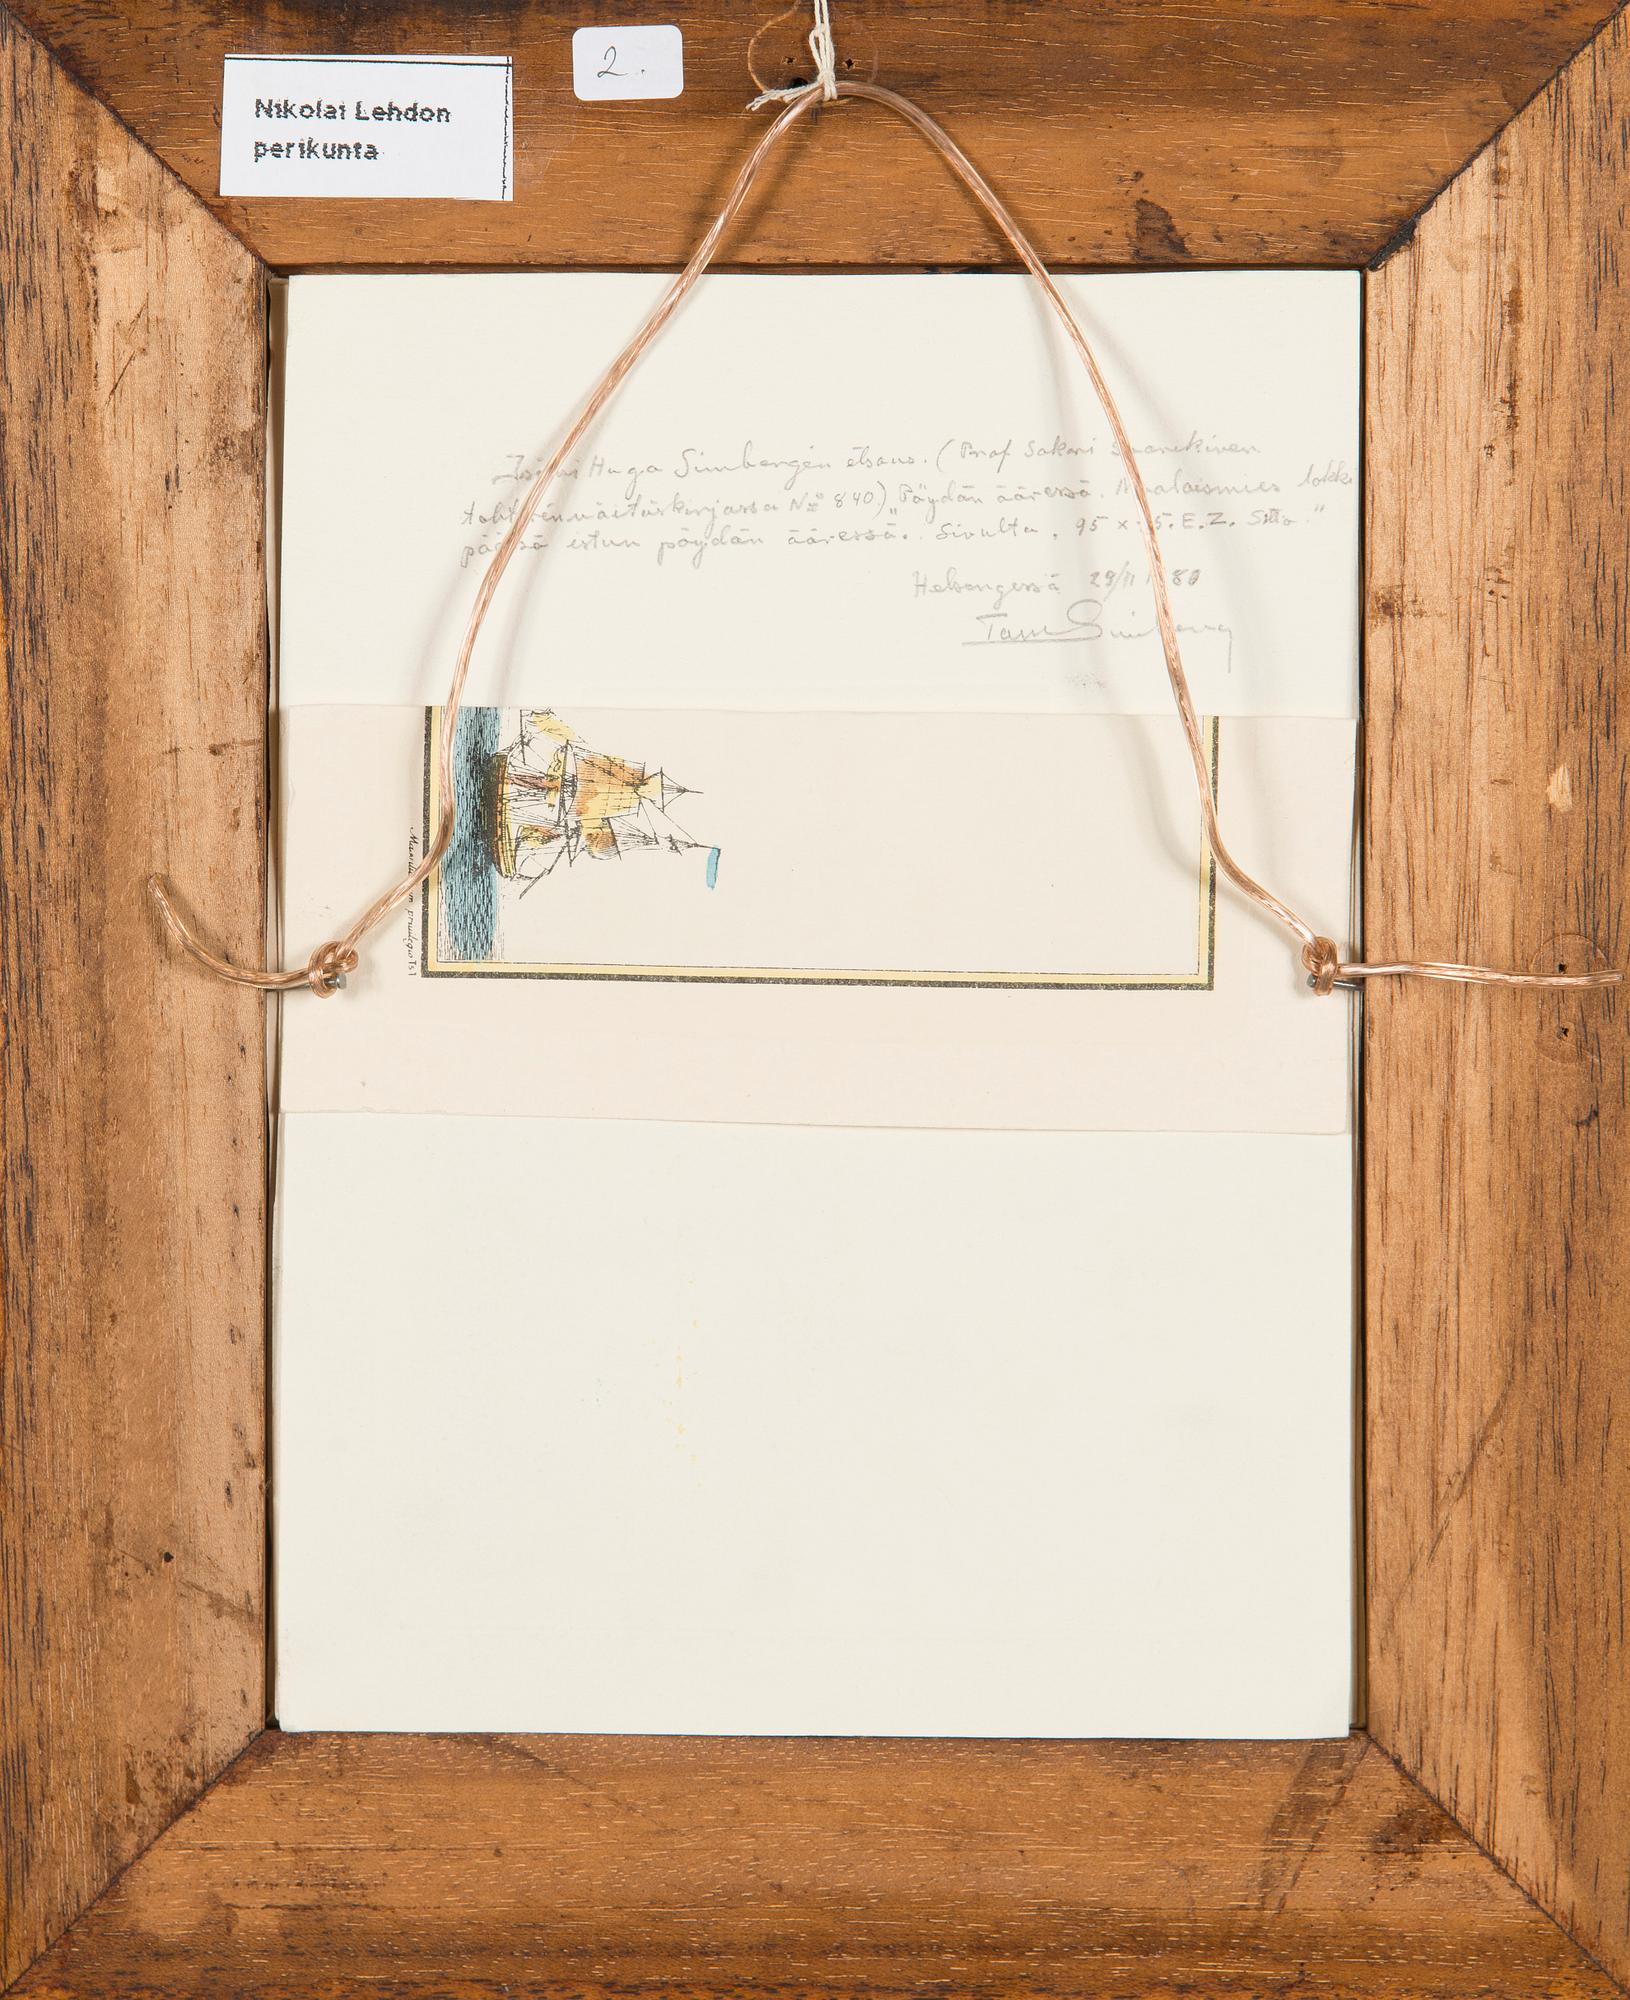 Nikolai Lehdon
perikunta
2.
Isäni Hugo Simbergin etsaus. (Prof Sakari Saarikiven
N:o 840) "Pöydän ääressä. Maalaismies lakki
päässä istuu pöydän ääressä. Sivulta. 95 x E.Z.
Helsingissä 29/11 1980
Tom Simberg
privilegio